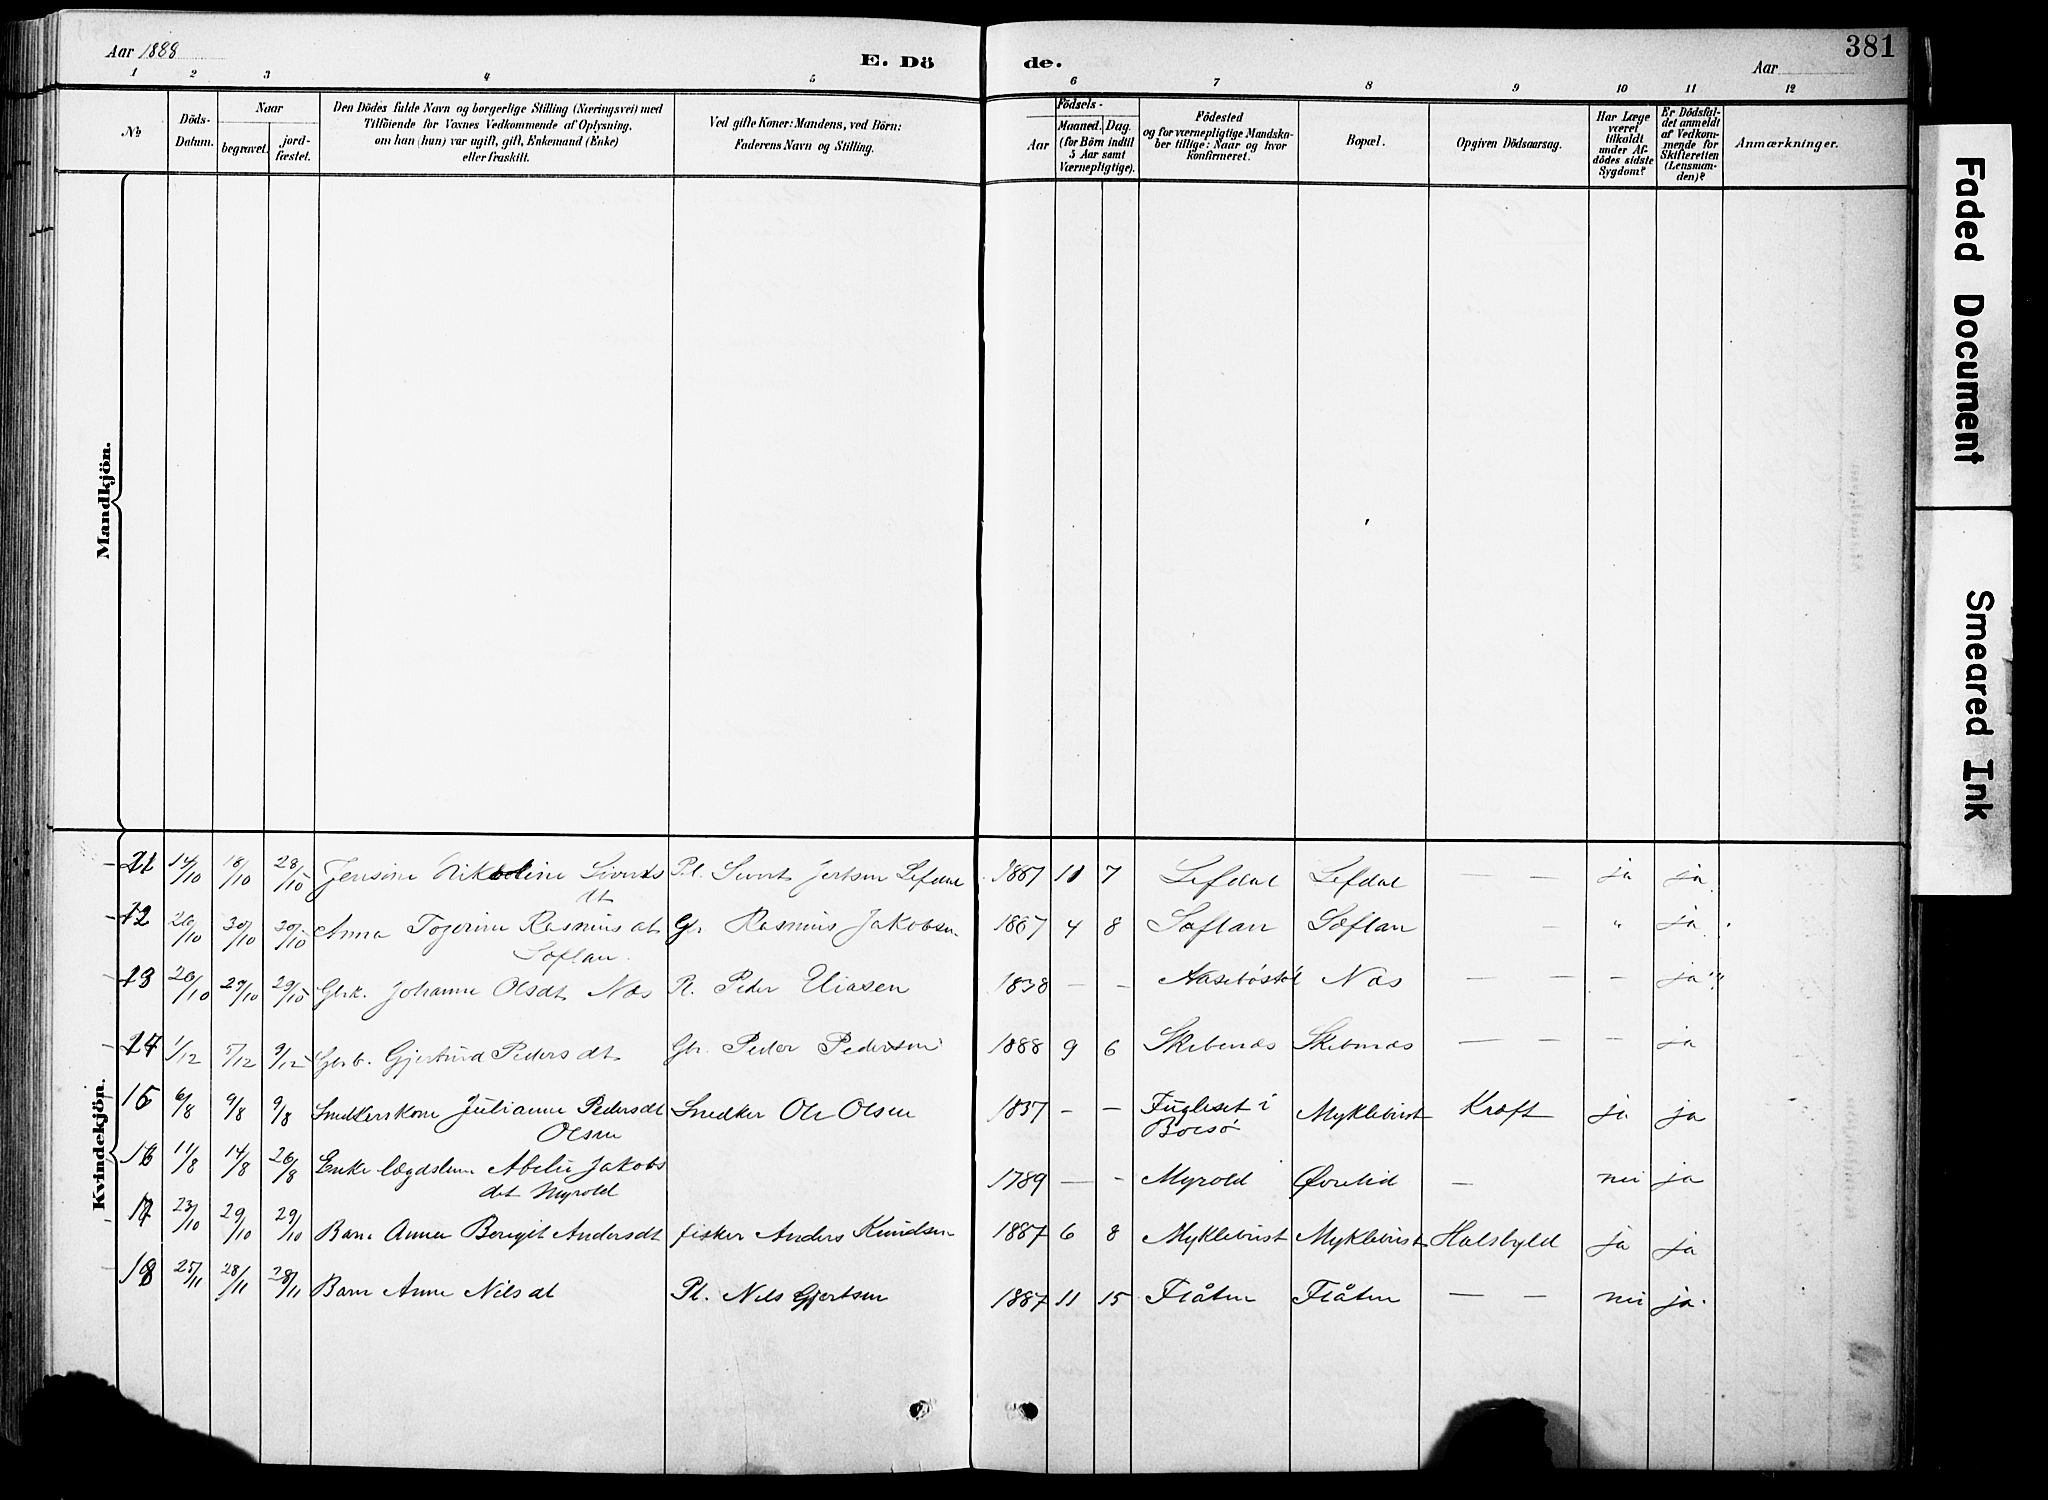 Aar 1888
E. Dö
de.
Aar
381
1 2 3 4 5 6 7 8 9 10 11 12
№
Döds-
Datum.
Naar
begravet.
jord-
fæstet.
Den Dödes fulde Navn og borgerlige Stilling (Næringsvei) med
Tilföiende for Voxnes Vedkommende af Oplysning,
om han (hun) var ugift, gift, Enkemand (Enke)
eller fraskilt.
Ved gifte Koner: Mandens, ved Börn:
Faderens Navn og Stilling.
Födsels-
Aar
Maaned.
Dag.
(for Börn indtil
5 Aar samt
Værnepligtige).
Födested
og for værnepligtige Mandska-
ber tillige: Naar og hvor
konfirmeret.
Bopæl.
Opgiven Dödsaarsag.
Har Læge
været
tilkaldt
under Af-
dödes sidste
Sygdom?
Er Dödsfal-
det anmeldt
af Vedkom-
mende for
Skifteretten
(Lensman-
den)?
Anmærkninger.
Mandkjön.
Kvindekjön.
14/10 18/10 28/10 Jensine Sivertsdt Pl. Sivert Jertsen Lefdal 1887 10 7 Lefdal Lefdal — — ja ja
12 20/10 30/10 30/10 Anna Togerine Rasmusdt Sæflan Gbr. Rasmus Jakobsen 1867 4 8 Sæflan Sæflan — " ja
13 20/10 29/10 29/10 Gbrk. Johanne Olsdt Næs Peder Eliasen 1838 — — Aasebøstøl Næs — — — ja
14 1/12 7/12 9/12 Gjertrud Pedersdt Gbr. Peder Pedersen 1888 9 6 Skebenæs Skebenæs — — — ja
15 6/8 9/8 9/8 Snedkerskone Julianne Pedersdt Olsen Snedker Ole Olsen 1837 — — Fugleset i Borsø Myklebust Kræft ja ja
16 11/8 14/8 26/8 Enke lægdslem Abelie Jakobsdet Myrold 1789 — — Myrold Øvrelid — nei ja
17 23/10 29/10 29/10 Barn Anne Beregit Andersdt fisker Anders Knudsen 1887 6 8 Myklebust Myklebust Halsbyld ja ja
18 25/11 28/11 28/11 Barn Anne Nilsdt Pl. Nils Gjertsen 1887 11 15 Flåten Flåten — — nei ja.
Faded Document
Smeared Ink